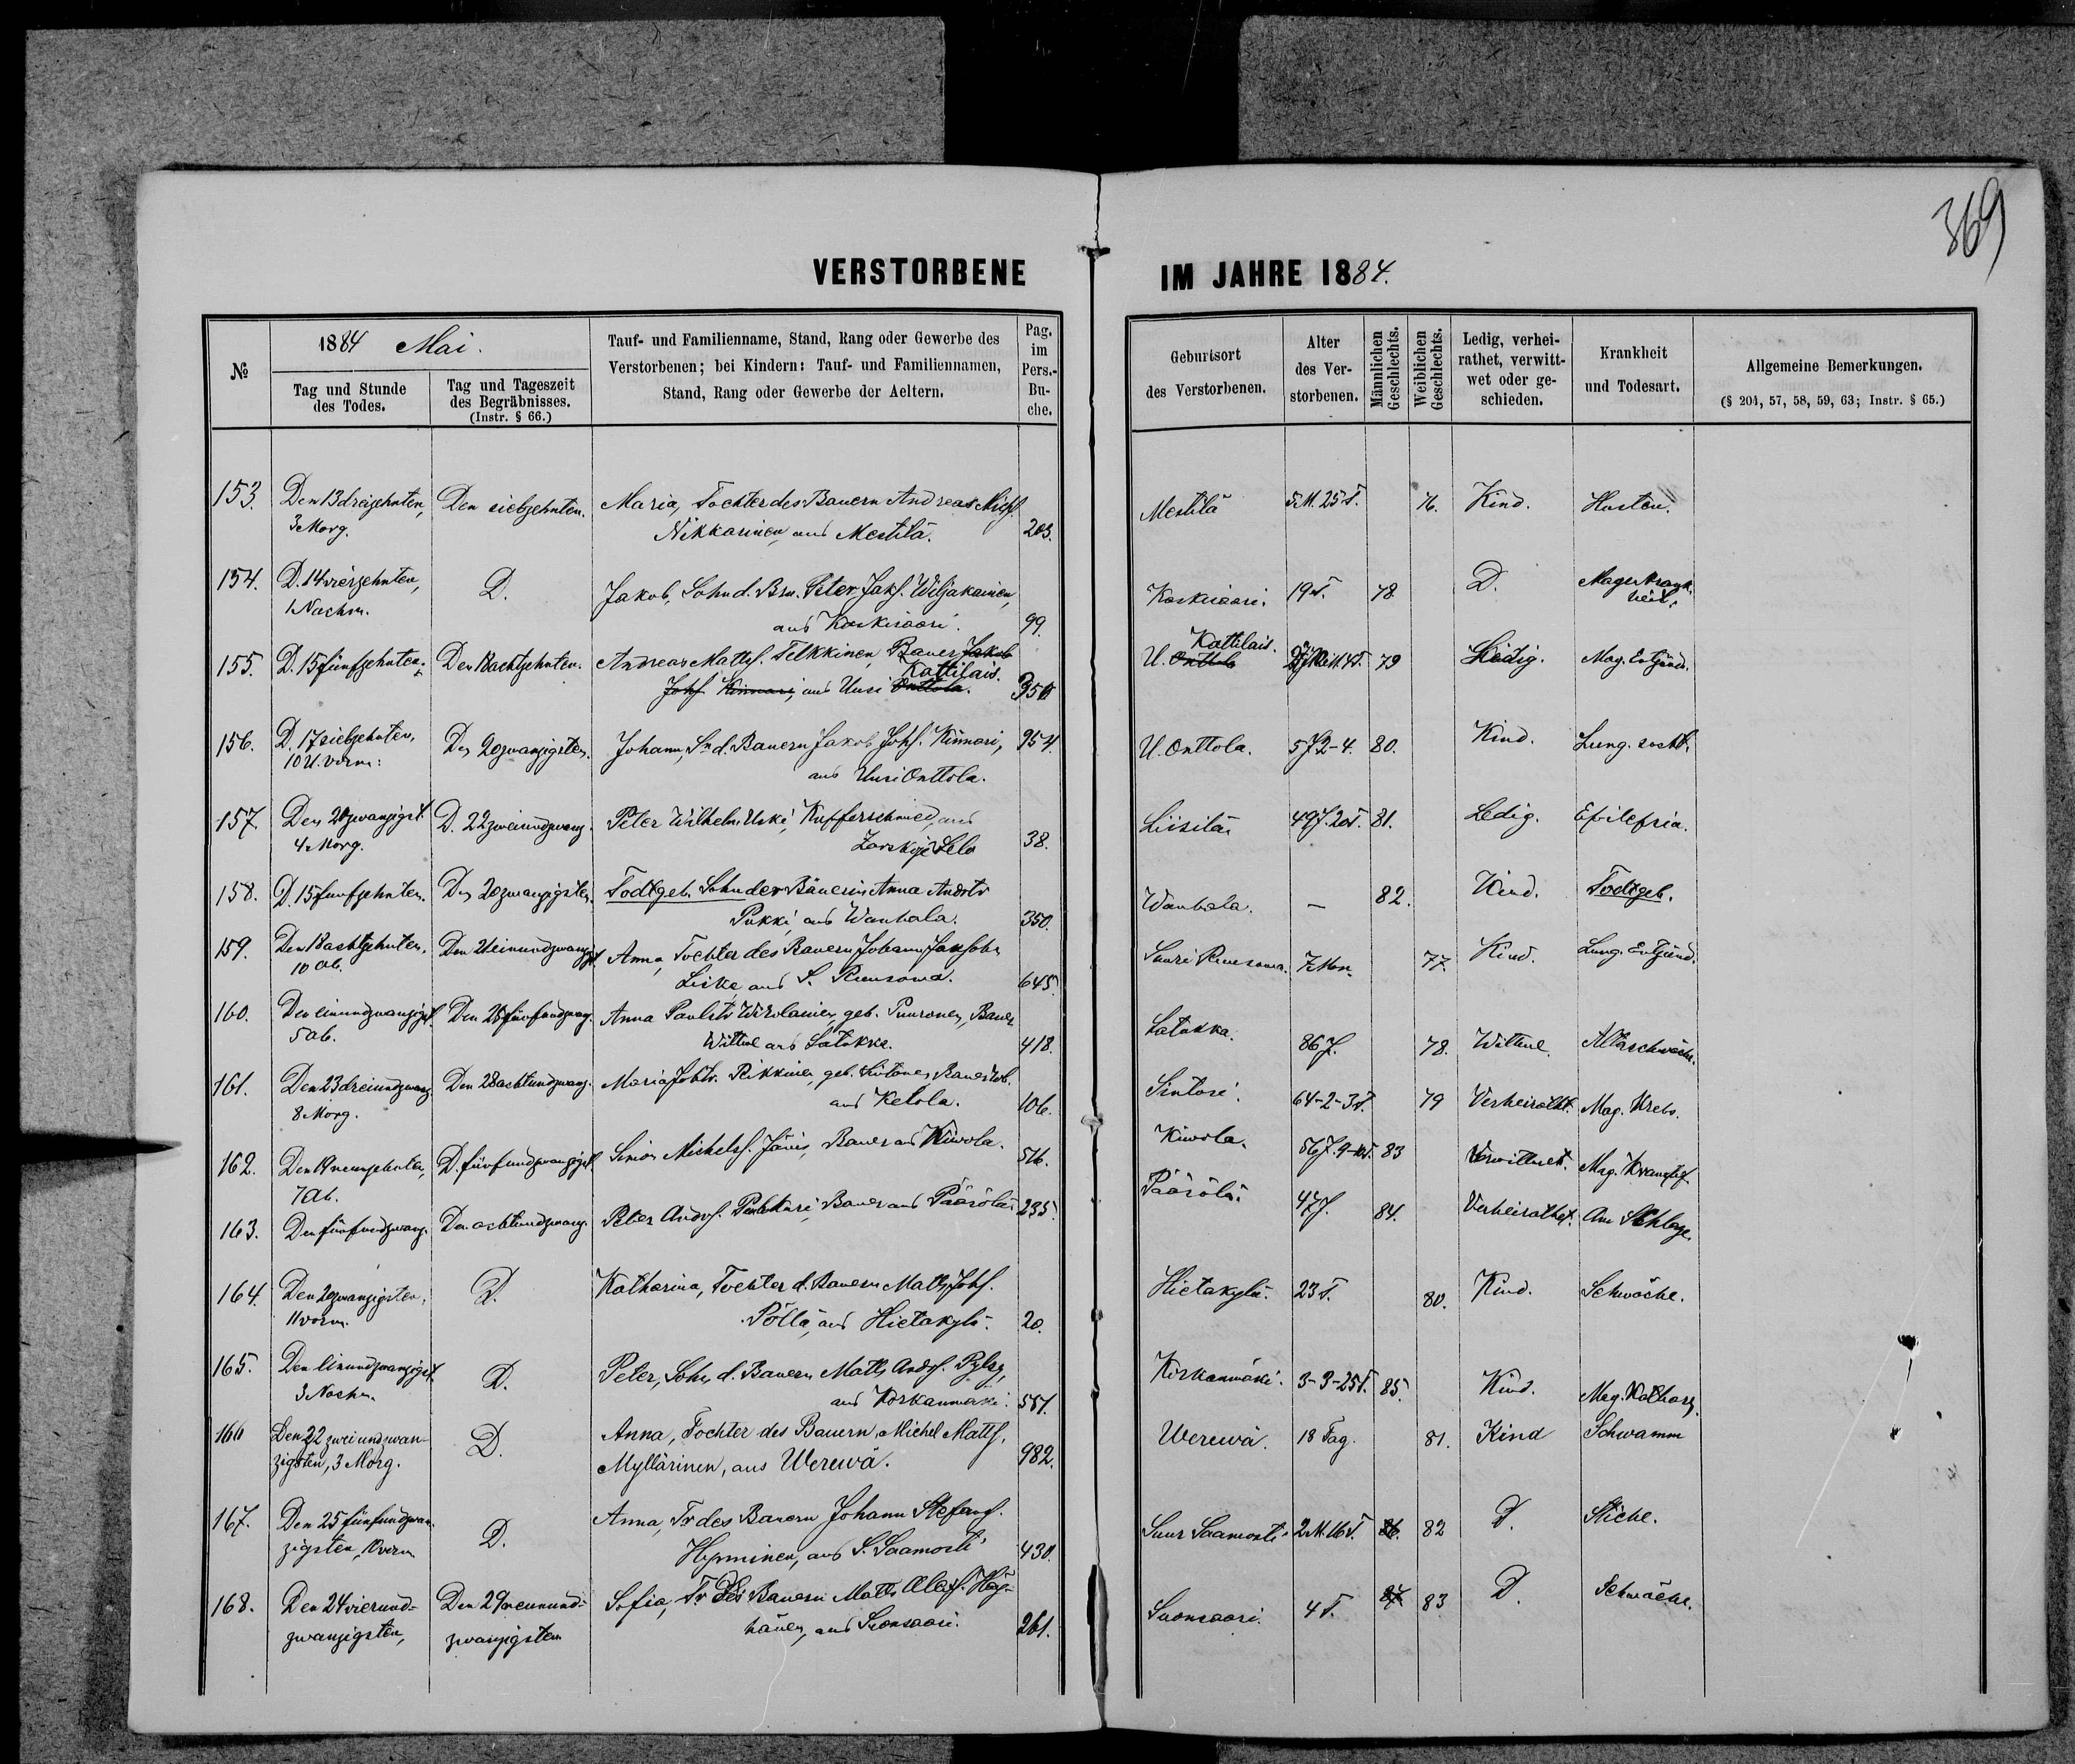 369
VERSTORBENE IM JAHRE 1884.
№
1884 Mai.
Tag und Stunde des Todes.
Tag und Tageszeit des Begräbnisses. (Instr. § 66.)
Tauf- und Familienname, Stand, Rang oder Gewerbe des Verstorbenen; bei Kindern: Tauf- und Familiennamen, Stand, Rang oder Gewerbe der Aeltern.
Pag. im Pers.-Buche.
Geburtsort des Verstorbenen.
Alter des Verstorbenen.
Männlichen Geschlechts.
Weiblichen Geschlechts.
Ledig, verheirathet, verwittwet oder geschieden.
Krankheit und Todesart.
Allgemeine Bemerkungen.
(§ 201, 57, 58, 59, 63; Instr. § 65.)
153. Den 13 dreizehnten, Den siebzehnten. Maria, Tochter des Bauern Andreas Michs. Mestilä 5 M. 25 T. 76. Kind. Husten.
3 Morg. Nikkarinen, aus Mestilä. 203.
154. D. 14 vierzehnten, D. Jakob, Sohn d. Brn. Peter Jaks. Wiljakainen, Koskisaari. 19 T. 78. D. Magenkrankheit.
1 Nachm. aus Koskisaari. 99.
155. D. 15 fünfzehnten. Den 18 achtzehnten. Andreas Matths. Telkkinen, Bauer Jakob U. Onttola Kattilais. 79 Ledig. Mag. Entzünd.
Johs. Kinnari, aus Uusi Onttola. Kattilais.
156. D. 17 siebzehnten, Den 20 zwanzigsten. Johann, Sn d. Bauern Jakob Johs. Kinnari, 954. U. Onttola. 5 J 2-4. 80. Kind. Lung. sucht.
10 U. vorm: aus Uusi Onttola.
157. Den 20 zwanzigst. D. 22 zweiundzwanz. Peter Wilhelm Uski, Kupferschmied, aus Liisilä. 49 J. 20 T. 81. Ledig. Epilepsia.
4 Morg. Zarskoje Selo 38.
158. D. 15 fünfzehnten. Den 20 zwanzigsten. Todtgeb. Sohn der Bäuerin Anna Andrstr Wanhala. — 82. Kind. Todtgeb.
Pukki, aus Wanhala. 350.
159. Den 18 achtzehnten, Den 21 einundzwanzigst. Anna, Tochter des Bauern Johann 7 Mon. 77. Kind. Lung. Entzünd.
10 Ab. aus S. 645.
160. Den einundzwanzigst. Den 25 fünfundzwanz. Anna Paulstr Wirolainen, geb. Puuronen, Bauer Latukka. 86 J. 78. Wittwe. Altersschwäche.
5 Ab. Wittwe aus Latukka. 418.
161. Den 23 dreiundzwanz. Den 28 achtundzwanz. Maria Johtr. Rikkinen, geb. 64-2-3 T. 79 Verheirathet. Mag. Krebs.
8 Morg. aus Ketola. 106.
162. Den 19 neunzehnten, D. fünfundzwanzigst. Simon Michels. Jänis, Bauer aus Kiwola. 516. Kiwola. 83 Verwittwet. Mag.
7 Ab.
163. Den fünfundzwanz. Den achtundzwanz. Peter Andrs. Bauer aus Päärölä 235. Päärölä. 47 J. 84. Verheirathet. Am Schlage.
164. Den 20 zwanzigsten, D. Katharina, Tochter d. Bauern Matth Johs. Hietakylä. 23 T. 80. Kind. Schwäche.
11 vorm. Pöllä, aus Hietakylä. 20.
165. Den einundzwanzigst. D. Peter, Sohn d. Bauern Matth Andrs. Korkanmäki. 3-3-25 T. 85. Kind. Mag. Katharr.
3 Nachm. aus Korkanmäki. 551.
166 Den 22 zweiundzwan- D. Anna, Tochter des Bauern Michel Matths, Werewä. 18 Tag. 81. Kind Schwamm
zigsten, 3 Morg. Myllärinen, aus Werewä. 982.
167. Den 25 fünfundzwan- D. Anna, Tr des Bauern Johann Stefans. Suur Saamosti. 2 M. 16 T. 86. 82 D. Stiche.
zigsten, vorm. Hyminen, aus S. Saamosti 430.
168. Den 24 vierund- Den 29 neunund- Sofia, Tr des Bauern Matth Alexs. Häy- Suonsaari. 4 T. 87 83 D. Schwäche.
zwanzigsten, zwanzigsten häinen, aus Suonsaari. 261.